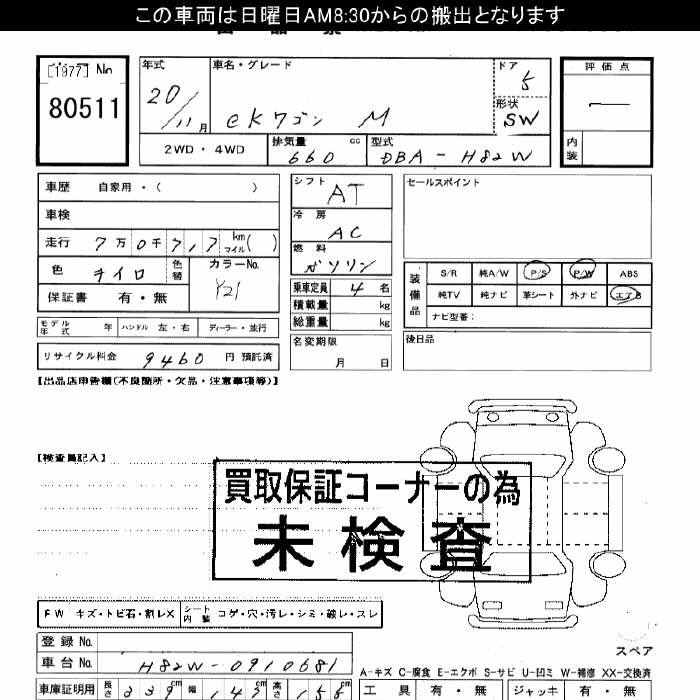 この車両は日曜日AM8:30からの搬出となります
[1977] No
80511
年式 20/11月
車名・グレード eKワゴン M
ドア 5
形状 SW
評価点 —
内装
2WD・4WD
排気量 660 cc
型式 DBA-H82W
車歴 自家用・( )
車検
走行 7万0千717 km マイル( )
色 キイロ 色替
カラーNo. Y21
保証書 有・無
シフト AT
冷房 AC
燃料 ガソリン
乗車定員 4名
積載量 kg
総重量 kg
セールスポイント
装備品 S/R 純A/W P/S P/W ABS
純TV 純ナビ 革シート 外ナビ エアB
ナビ型番:
モデル年式 年 ハンドル 左・右 ディーラー・並行
リサイクル料金 9460 円 預託済
名変期限 月 日
後日品
【出品店申告欄(不良箇所・欠品・注意事項等)】
【検査員記入】
買取保証コーナーの為
未検査
FW キズ・トビ石・割レX シート内装 コゲ・穴・汚レ・シミ・破レ・スレ
登録 No.
車台 No. H82W-0910681
スペア
A-キズ C-腐食 E-エクボ S-サビ U-凹ミ W-補修 XX-交換済
車庫証明用 長さ 339cm 幅 147cm 高さ 155cm
工具 有・無 ジャッキ 有・無